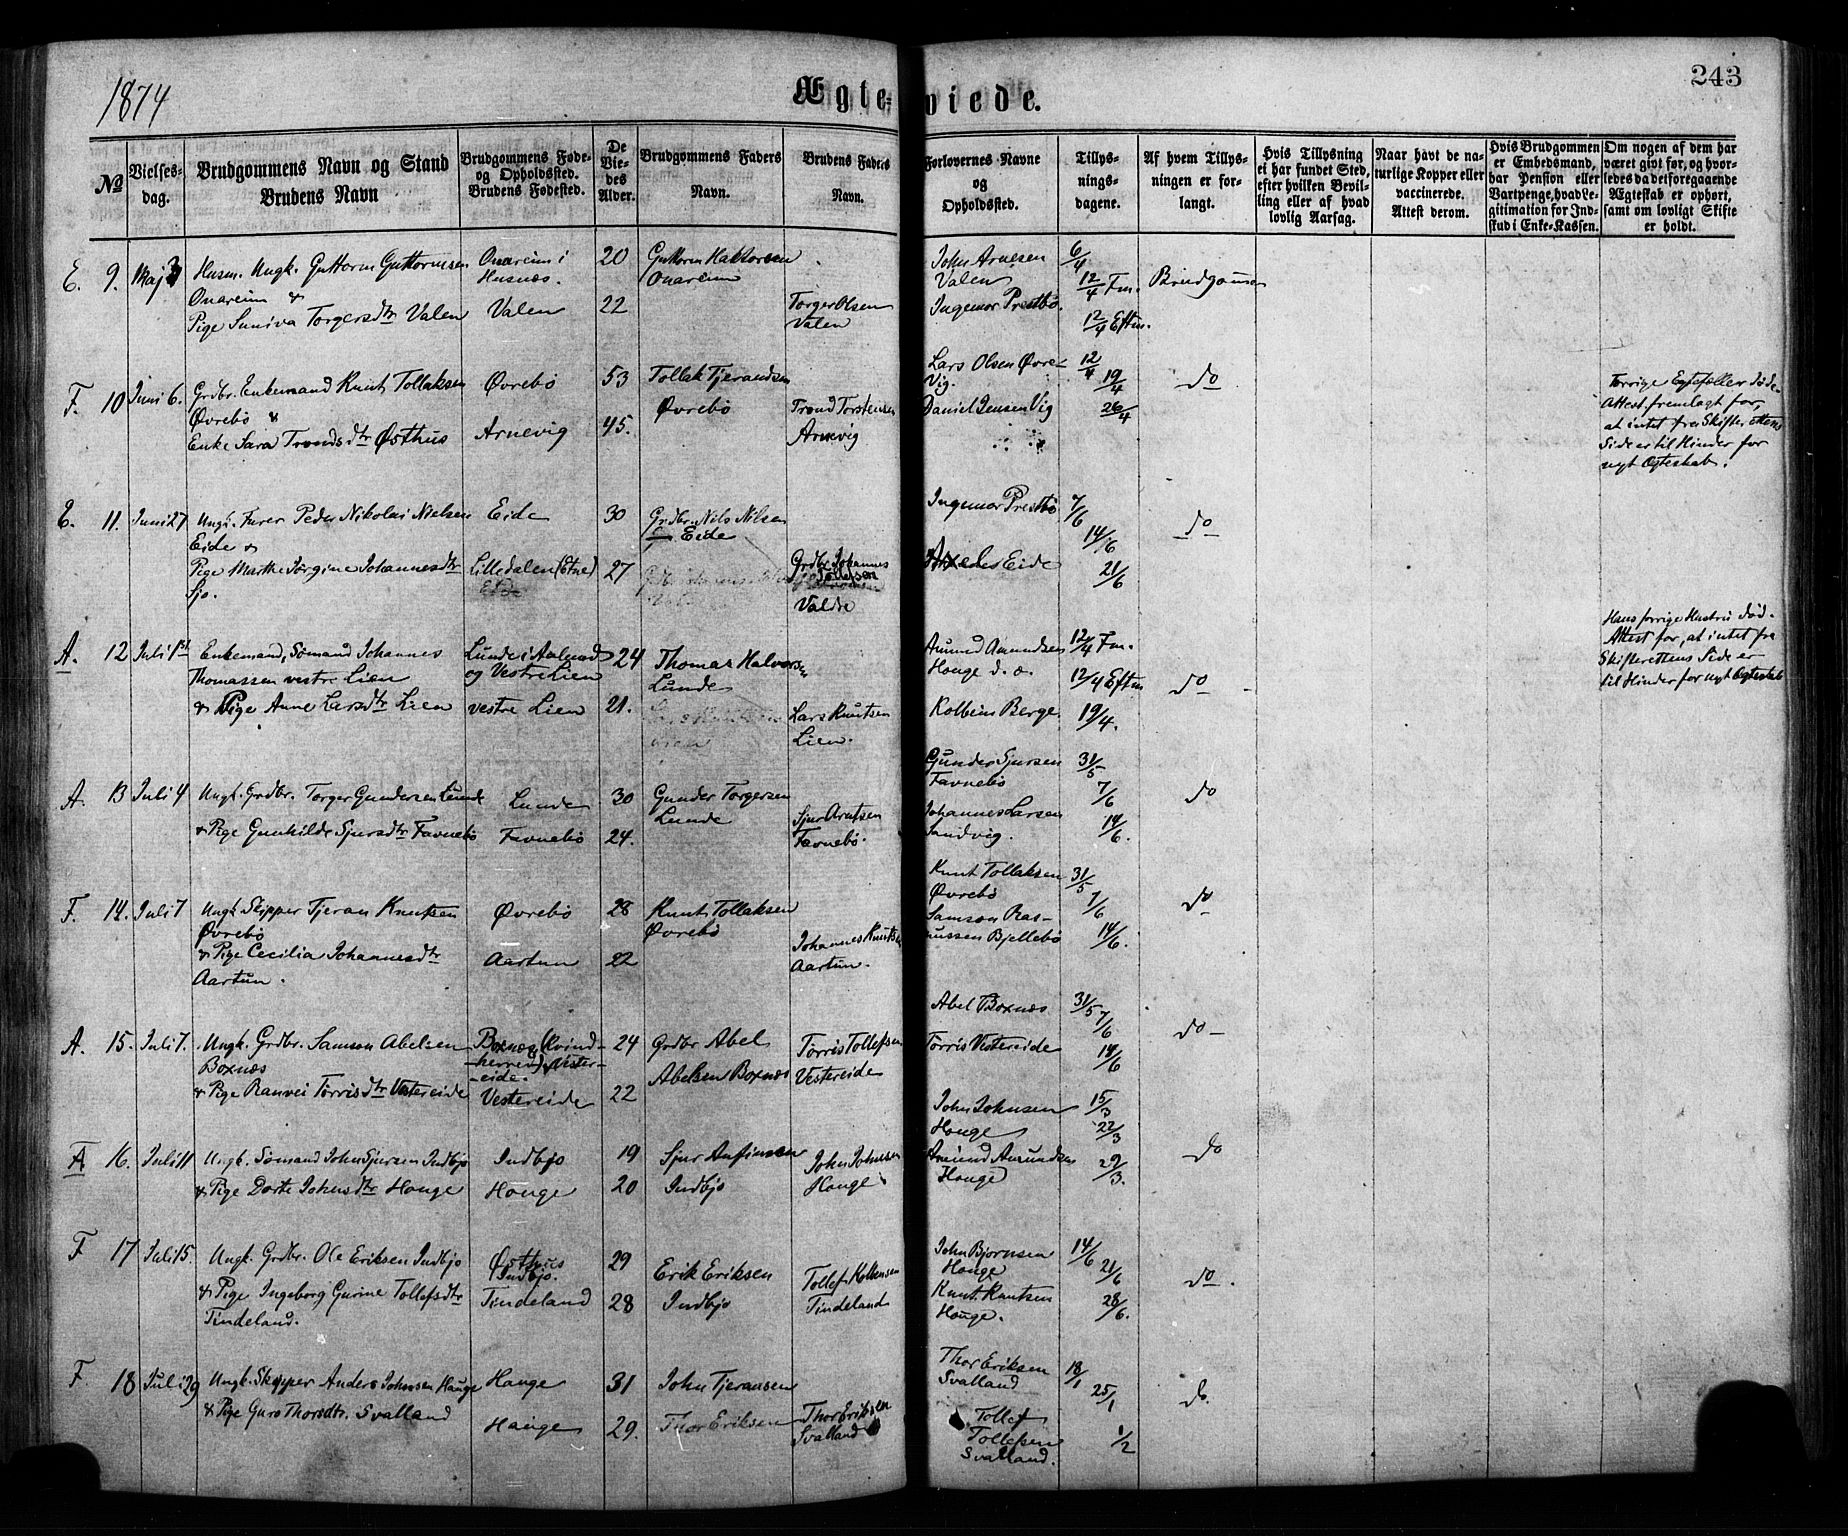 1874
Ægteviede.
243
No
Vielses-
dag.
Brudgommens Navn og Stand
Brudens Navn
Brudgommens Føde-
og Opholdssted.
Brudens Fødested.
De
Vie-
des
Alder.
Brudgommens Faders
Navn.
Brudens Faders
Navn.
Forlovernes Navne
og
Opholdssted.
Tillys-
nings-
dagene.
Af hvem Tillys-
ningen er for-
langt.
Hvis Tillysning
ei har fundet Sted,
efter hvilken Bevil-
ling eller af hvad
lovlig Aarsag.
Naar havt de na-
turlige Kopper eller
vaccinerede.
Attest derom.
Hvis Brudgommen
er Embedsmand,
har Pension eller
Vartpenge, hvad Le-
gitimation for Ind-
skud i Enke-Kassen.
Om nogen af dem har
været givt før, og hvor-
ledes da det foregaaende
Ægteskab er ophørt,
samt om lovligt Skifte
er holdt.
E. 9. Maj
Husm. Ungk. Guttorm Guttormsen
Onareim &
Pige Suniva Torgersdtr Valen
Onareim i
Husnæs.
Valen
20
22
Guttorm Haktorsen
Onareim
Torger Olsen
Valen
John Arnesen
Valen
Ingemor Prestbø.
6/4
12/4 Fm.
12/4 Eftm.
Brudgommen
F. 10 Juni 6.
Grdbr. Enkemand Knut Tollaksen
Øvrebø &
Enke Sara Trondsdtr Østhus
Øvrebø
Arnevig
53
45.
Tollak Tjerandsen
Øvrebø
Trond Torstensen
Arnevig
Lars Olsen Øvre-
Vig.
Daniel Jensen Vig
12/4
19/4
26/4
do
Forrige Egtefæller Døds-
Attest fremlagt for,
at intet fra Skifterettens
Side er til Hinder for
nyt Ægteskab.
E. 11. Juni 27
Ungk. Furer Peder Nikolai Nielsen
Eide &
Pige Marthe Jørgine Johannesdtr
Sjo.
Eide
Lilledalen (Etne)
Eide
30
27
Grdbr. Nils Nilsen
Eide
Grdbr Johannes
Tollefsen
Valdre
Ingemor Prestbø
Eide
7/6
14/6
21/6
do
A. 12 Juli 1st
Enkemand, Sømand Johannes
Thomassen vestre Lien
& Pige Anne Larsdtr Lien
Lunde i Aalmod
og Vestre Lien
vestre Lien
24
21.
Thomas Halvors
Lunde
Lars Knutsen
Lien.
Amund Amundsen
Houge d. æ.
Kolbein Berge
12/4 Fm.
12/4 Eftm
19/4.
do
Hans forrige Hustrus Død-
Attest for, at intet fra
Skifterettens Side er
til Hinder for nyt Ægteskab
A. 13 Juli 4
Ungk. Grdbr. Torger Gundersen Lunde
& Pige Gunhilde Sjursdtr Favnebø
Lunde
Favnebø
30
24.
Gunder Torgersen
Lunde
Sjur Arnfsen
Favnebø.
Gunder Sjursen
Favnebø
Johannes Larsen
Sandvig.
31/5
7/6
14/6.
do
F. 14. Juli 7
Ungk Skipper Tjeran Knutsen
Øvrebø
& Pige Cecilia Johannesdtr
Aartun.
Øvrebø
Aartun
28
22
Knut Tollaksen
Øvrebø
Johannes Knutsen
Aartun.
Knut Tollaksen
Øvrebø
Samson Ras-
mussen Bjellebø
31/5
7/6
14/6.
do
A. 15. Juli 7.
Ungk. Grdbr. Samson Abelsen
Boxnæs
& Pige Ranvei Tørrisdtr Vestereide
Boxnæs (Kvind-
herred) & Vester-
eide.
Vestereide
24
22
Grdbr Abel
Abelsen Boxnæs
Tørris Tollefsen
Vestereide
Abel Boxnæs
Tørris Vestereide
31/5
7/6
14/6
do
A 16. Juli 11
Ungk. Sømand John Sjursen Indbjo
& Pige Dorte Johnsdtr Houge
Indbjo
Houge
19
20
Sjur Anfinsen
Indbjo
John Johnsen
Houge
John Johnsen
Houge
Amund Amundsen
Houge
15/3
22/3
29/3.
do
F 17 Juli 15.
Ungk. Grdbr. Ole Eriksen Indbjo
& Pige Ingeborg Gurine Tollefsdtr
Tindeland.
Østhus
Indbjo.
Tindeland
29
28
Erik Eriksen
Indbjo
Tollef Kolbensen
Tindeland
John Bjørnsen
Houge
Knut Knutsen
Houge.
14/6
21/6
28/6.
do.
F. 18 Juli 29
Ungk. Skipper Anders Johnsen Hauge
& Pige Guro Thorsdtr. Svalland
Hauge
Hauge
31
29.
John Tjeransen
Thor Eriksen
Thor Eriksen
Svalland
Thor Eriksen
Svalland
Tollef
Tollefsen
Svalland.
18/1
25/1
1/2
do.